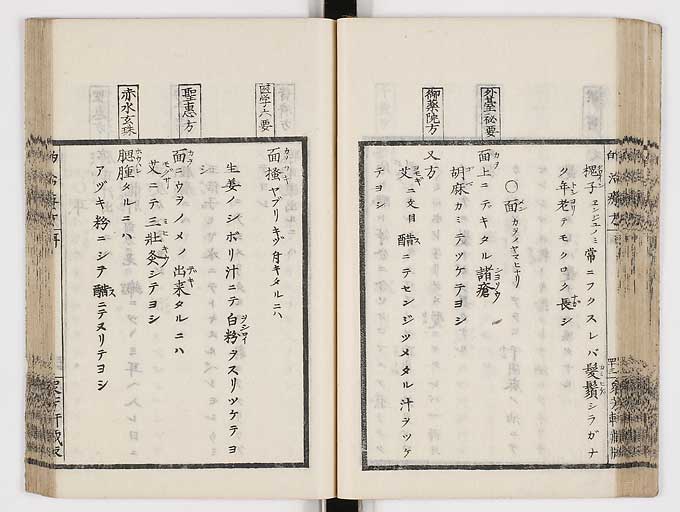 槐子 ヱンジユノミ 常ニフクスレバ髪鬚シラガナ
ク年老テモクロク長シ
〇面 カヲノヤマヒナリ
外臺秘要
面上ニデキタル諸瘡
胡麻カミテツケテヨシ
御藥院方
又方
艾ニ文目醋ニテセンジツメタル汁ヲツケ
テヨシ
醫学六要
面搔ヤブリキヅ付キタルニハ
生姜ノシボリ汁ニテ白粉ヲスリツケテヨ
シ
聖惠方
面ニウヲノメノ出来タルニハ
艾ニテ三壯灸シテヨシ
赤水玄珠
腮腫タルニハ
アヅキ粉ニシテ醋ニテヌリテヨシ